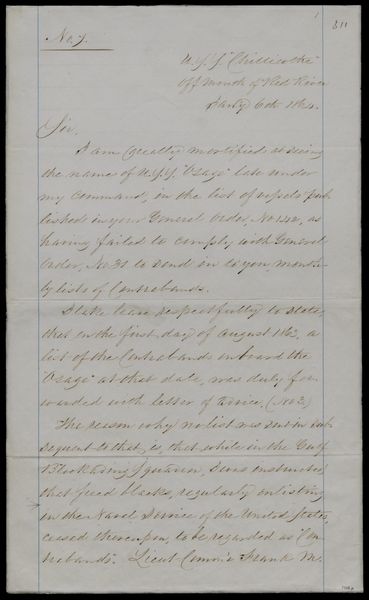 311
No. 7.
U.S.S. "Chillicothe"
Off Mouth of Red River
Jan'y 6th 1864.
Sir,
I am greatly mortified at seeing
the name of U.S.S. "Osage" late under
my command, in the list of vessels pub-
lished in your General Order, No. 142, as
having failed to comply with General
Order, No. 31 to send in to you month-
ly lists of Contrabands.
I take leave respectfully to state,
that on the first day of August 1863, a
list of the Contrabands onboard the
"Osage" at that date, was duly for-
warded with letter of advice. (No 2)
The reason why no list was sent in sub-
sequent to that, is, that while in the Gulf
Blockading Squadron, I was instructed
that freed blacks, regularly enlisting
in the Naval Service of the United States,
ceased thereupon, to be regarded as "Con-
trabands". Lieut. Comm'r Frank M.